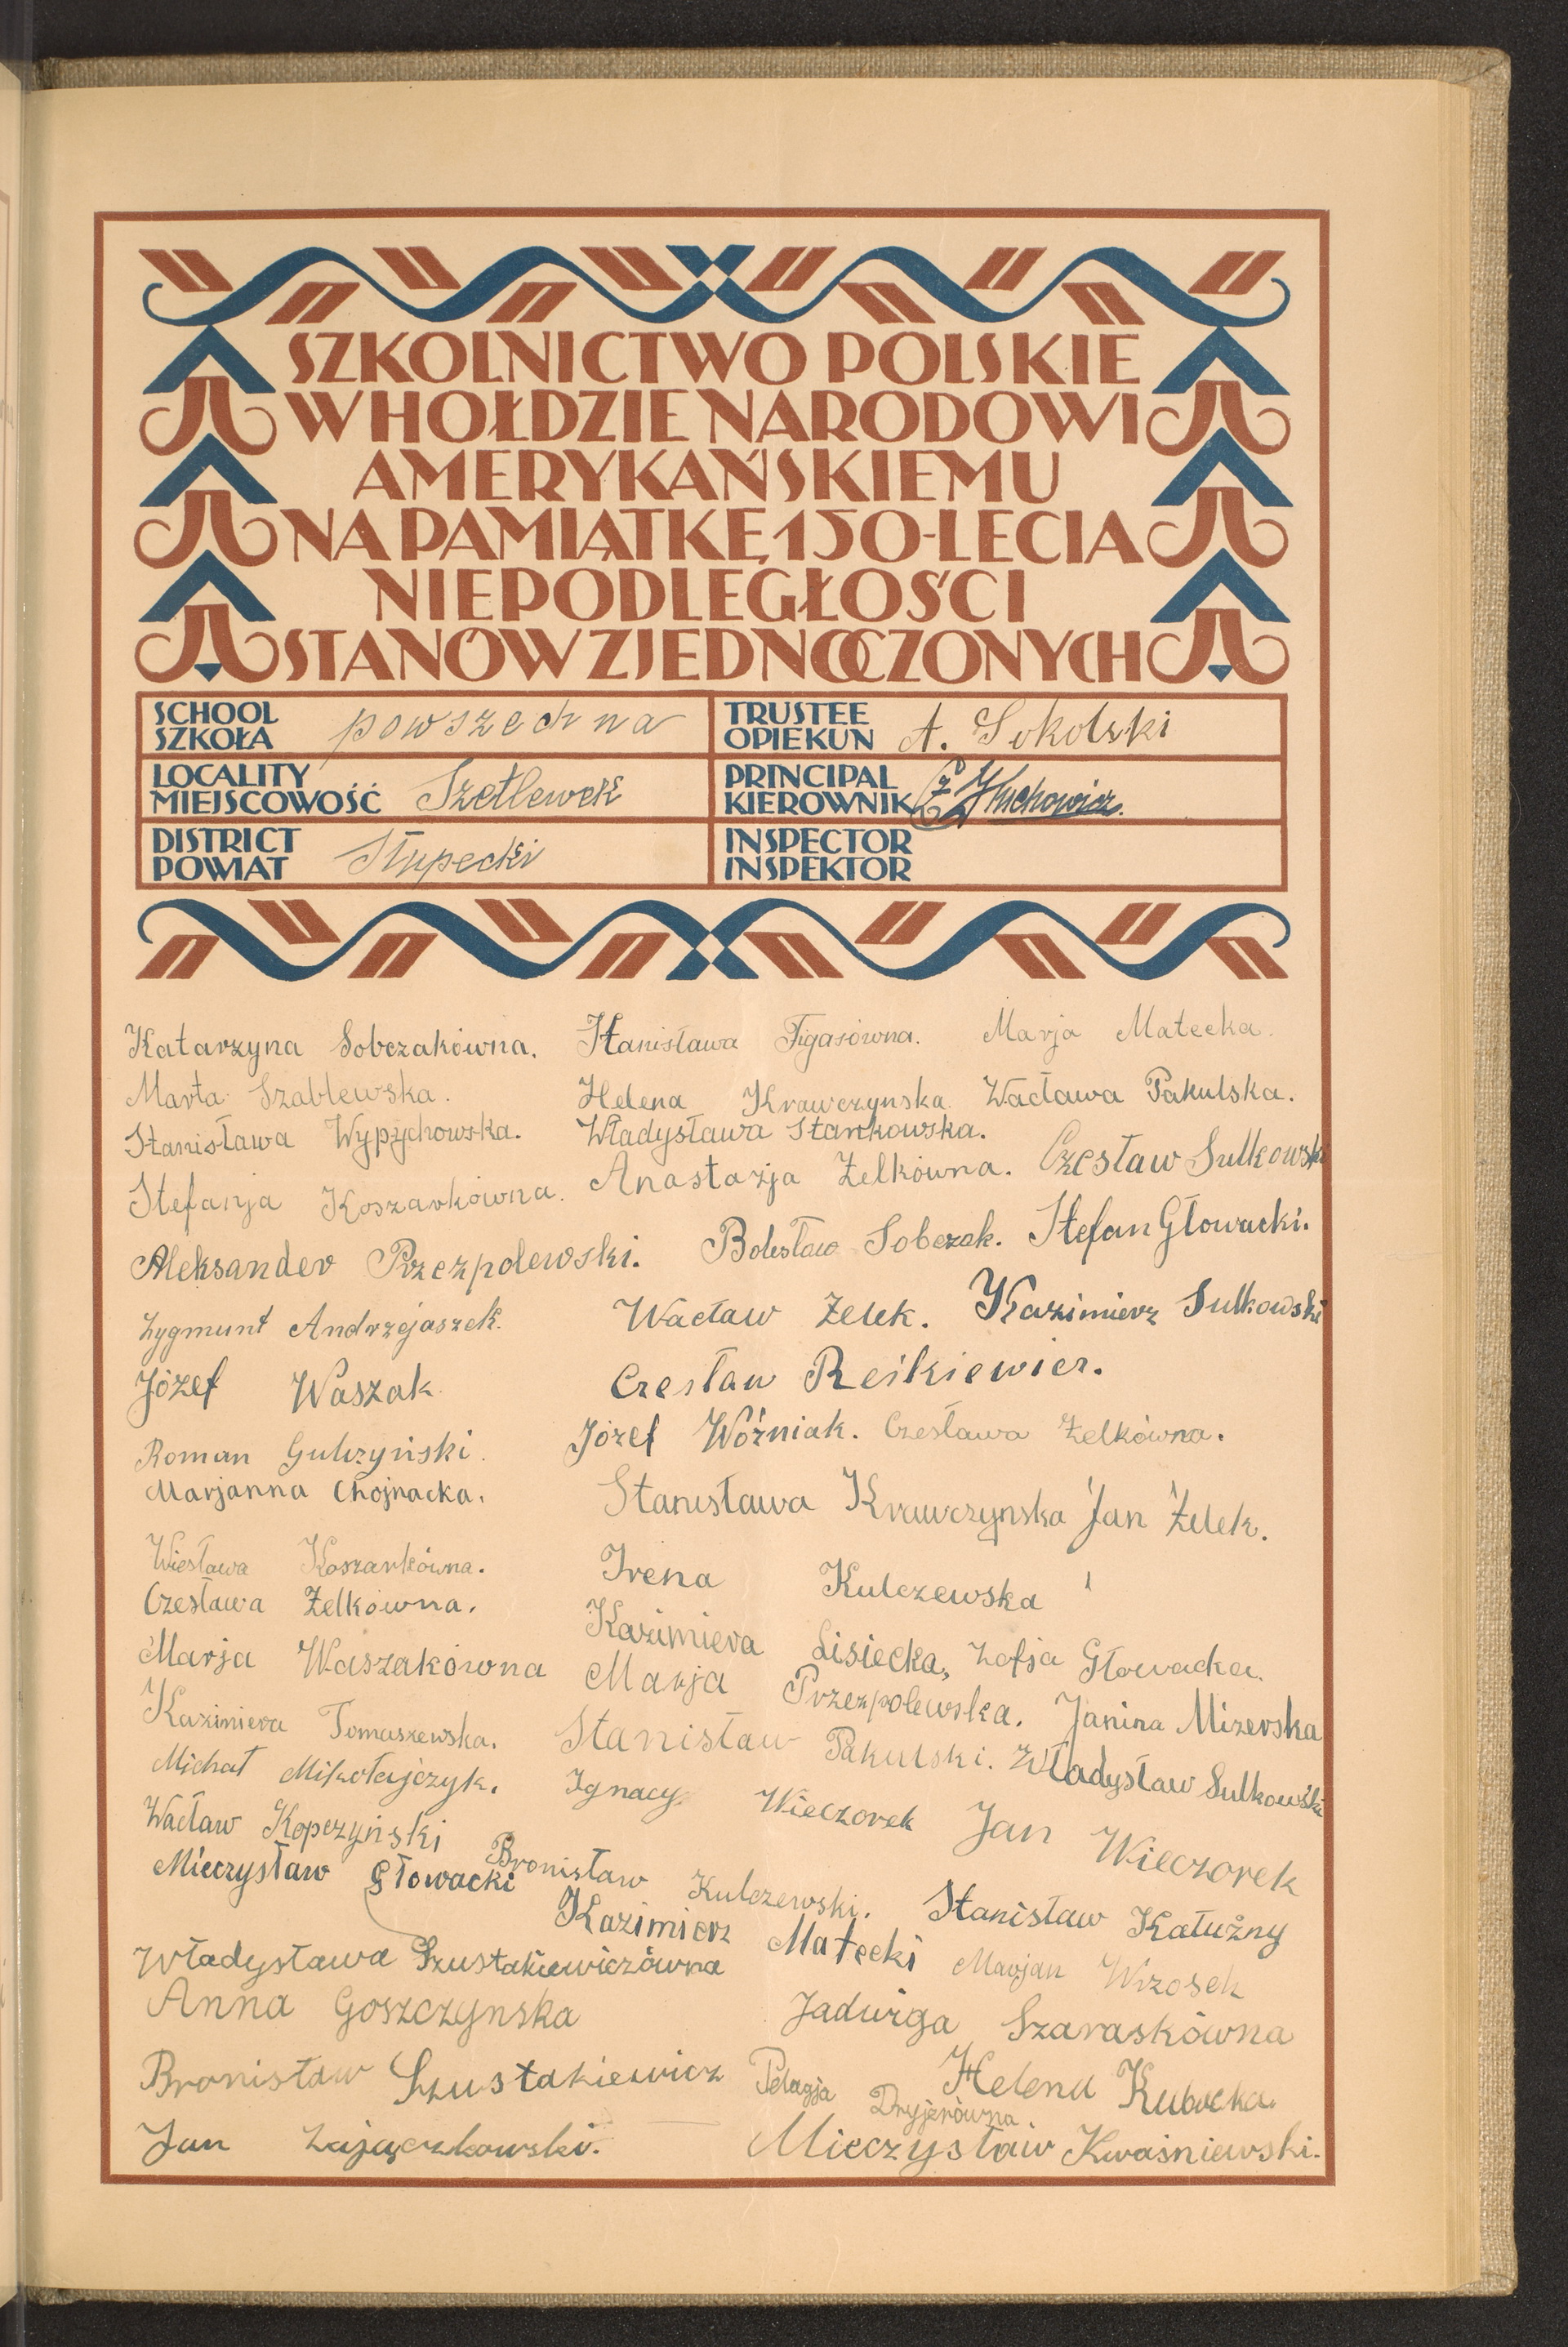 SZKOLNICTWO POLSKIE
W HOŁDZIE NARODOWI
AMERYKAŃSKIEMU
NA PAMIĄTKĘ 150-LECIA
NIEPODLEGŁOŚCI
STANÓW ZJEDNOCZONYCH
SCHOOL SZKOŁA powszechna
TRUSTEE OPIEKUN A. Sokolski
LOCALITY MIEJSCOWOŚĆ Szetlewek
PRINCIPAL KIEROWNIK
DISTRICT POWIAT Słupecki
INSPECTOR INSPEKTOR
Katarzyna Sobczakówna. Stanisława Figasówna. Marja Matecka.
Marta Szablewska. Helena Krawczynska Wacława Pakulska.
Stanisława Wypychowska. Władysława Stankowska.
Stefanja Koszarkówna. Anastazja Żelkówna. Czesław Sulkowski
Aleksander Przezpolewski. Bolesław Sobczak. Stefan Głowacki.
Zygmunt Andrzejaszek. Wacław Żelek. Kazimierz Sulkowski
Józef Waszak Czesław Reśkiewicz.
Roman Gulczyński. Józef Woźniak. Czesława Żelkówna.
Marjanna Chojnacka. Stanisława Krawczynska Jan Żelek.
Wiesława Koszarkówna. Irena Kulczewska
Czesława Żelkówna. Kazimiera Lisiecka, Zofja Głowacka.
Marja Waszakówna Marja Przezpolewska. Janina Mizerska
Kazimiera Tomaszewska. Stanisław Pakulski. Władysław Sulkowski
Michał Mikołajczyk. Ignacy Wieczorek Jan Wieczorek
Wacław Kopczyński Bronisław Kulczewski. Stanisław Kałużny
Mieczysław Głowacki Kazimierz Matecki Marjan Wrzosek
Władysława Szustakiewiczówna
Anna Goszczynska Jadwiga Szaraskówna
Bronisław Szustakiewicz Pelagja Dryjerówna. Helena Kubocka.
Jan Zajączkowski. Mieczysław Kwaśniewski.